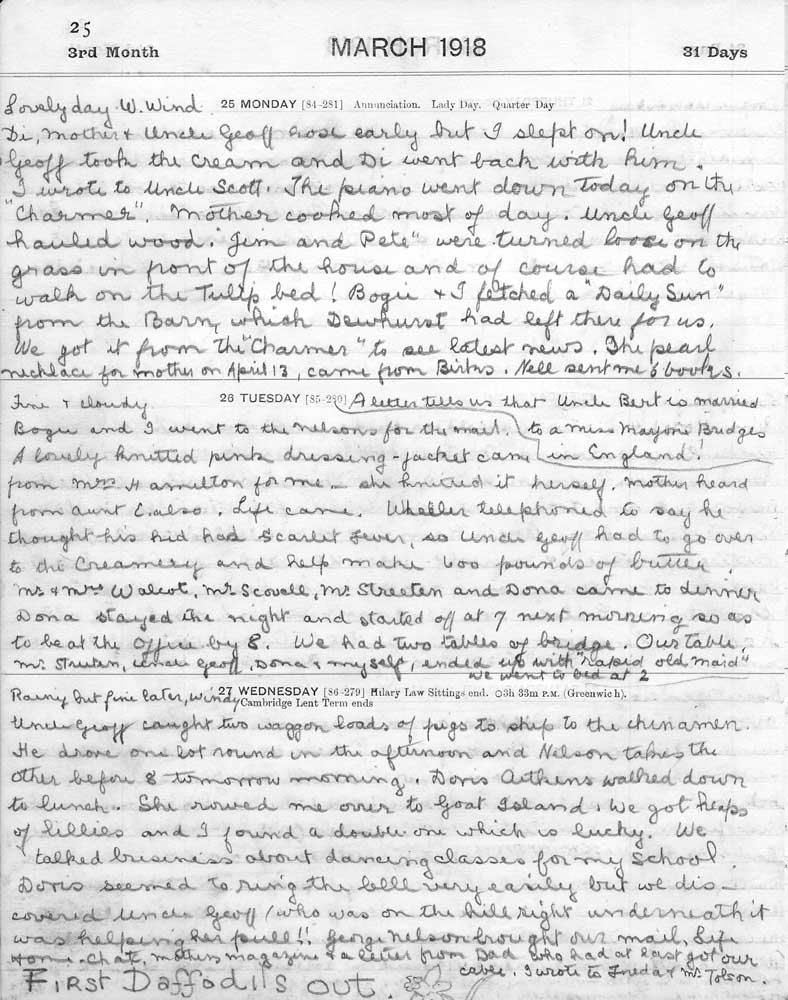 25
3rd Month MARCH 1918 31 Days
Lovely day W. Wind. 25 MONDAY [84-281] Annunciation. Lady Day. Quarter Day
Di, Mother & Uncle Geoff rose early but I slept on! Uncle
Geoff took the cream and Di went back with him.
I wrote to Uncle Scott. The piano went down today on the
"Charmer". Mother cooked most of day. Uncle Geoff
hauled wood. "Jim and Pete" were turned loose on the
grass in front of the house and of course had to
walk on the Tulip bed! Bogie & I fetched a "Daily Sun"
from the Barn, which Dewhurst had left there for us.
We got it from the "Charmer" to see latest news. The pearl
necklace for mother on April 13, came from Birks. Nell sent me 6 books.
Fine & cloudy. 26 TUESDAY [85-280] A letter tells us that Uncle Bert is married
Bogie and I went to the Nelsons for the mail. to a Miss Marjorie Bridges
A lovely knitted pink dressing-jacket came in England.
from Mrs Hamilton for me – she knitted it herself. Mother heard
from aunt E. also. Life came. Wheller telephoned to say he
thought his kid had Scarlet Fever, so Uncle Geoff had to go over
to the Creamery and help make 600 pounds of butter.
Mr & Mrs Walcot, Mr Scovell, Mr Streeten and Dona came to dinner
Dona stayed the night and started off at 7 next morning so as
to be at the Office by 8. We had two tables of bridge. Our table,
Mr. Streeten, Uncle Geoff, Dona & myself, ended up with "rapid old maid"
we went to bed at 2
Rainy but fine later, windy 27 WEDNESDAY [86-279] Hilary Law Sittings end. O3h 33m P.M. (Greenwich).
Cambridge Lent Term ends
Uncle Geoff caught two waggon loads of pigs to ship to the chinamen.
He drove one lot round in the afternoon and Nelson takes the
other before 8 tomorrow morning. Doris Aitkens walked down
to lunch. She rowed me over to Goat Island. We got heaps
of lillies and I found a double one which is lucky. We
talked business about dancing classes for my school.
Doris seemed to ring the bell very easily but we dis-
covered Uncle Geoff (who was on the hill right underneath it
was helping her pull!! George Nelson brought our mail, Life
Home-Chat, mothers magazine & a letter from Dad who had at last got our
cable. I wrote to Freda & Mr Tolson.
FIRST Daffodils OUT.